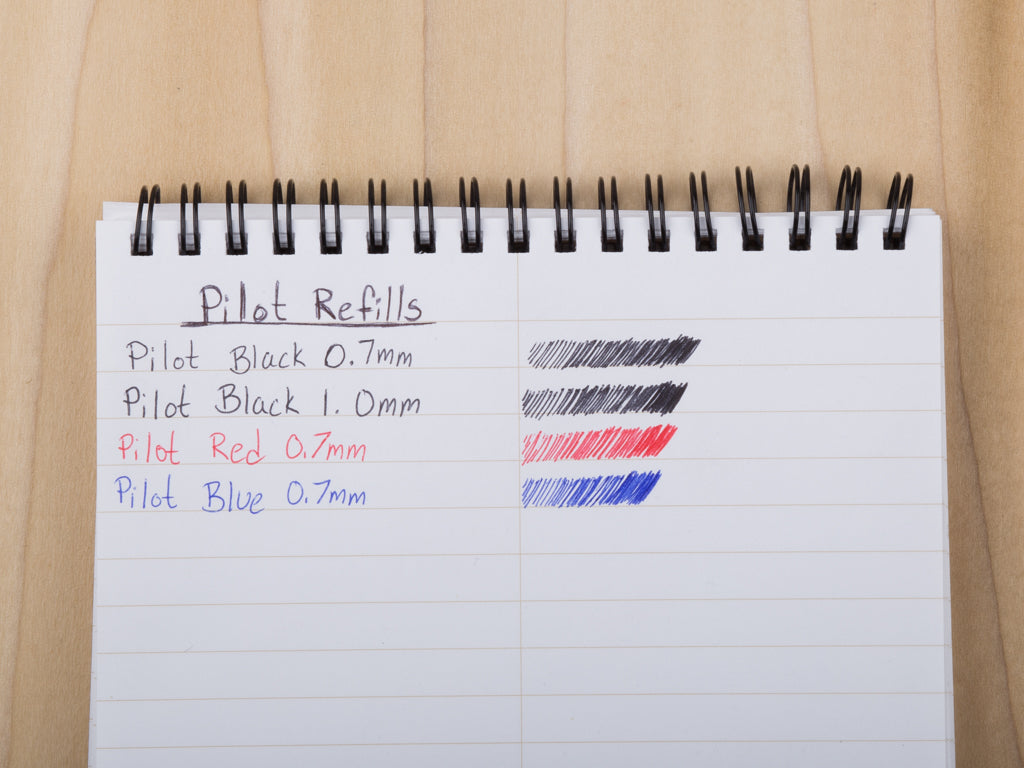 Pilot Refills
Pilot Black 0.7mm
Pilot Black 1.0mm
Pilot Red 0.7mm
Pilot Blue 0.7mm